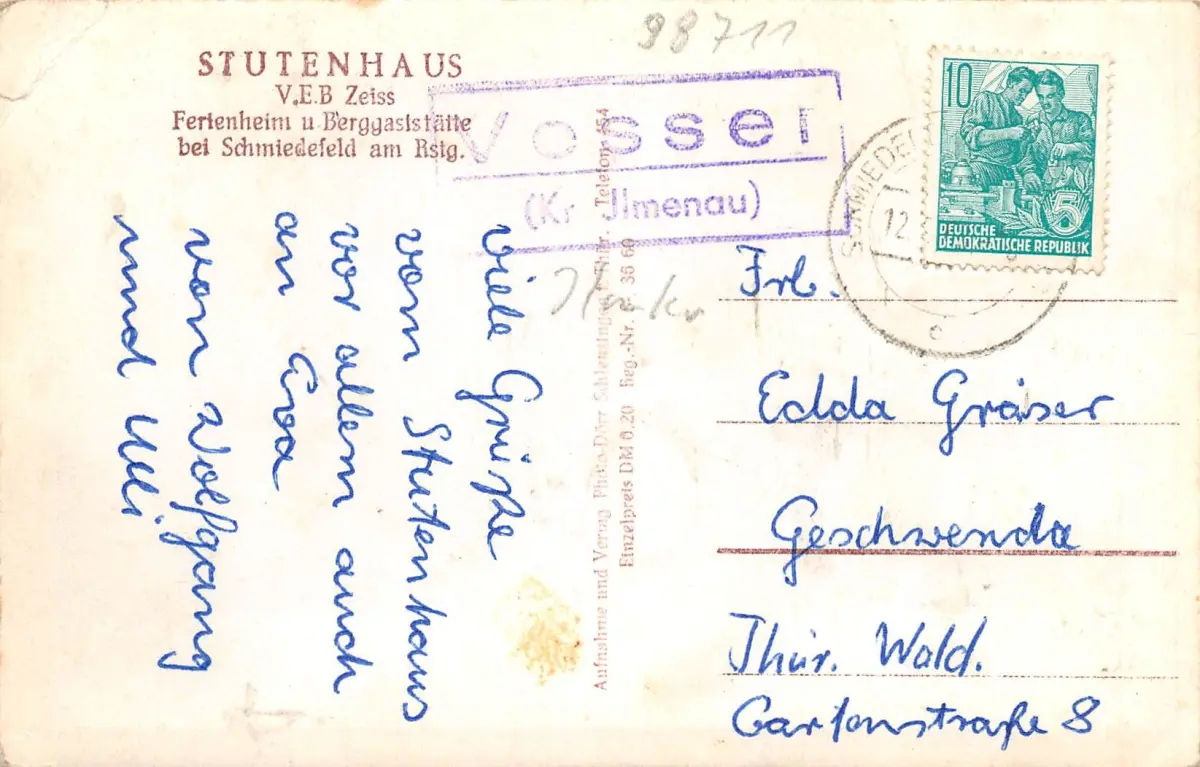 98711
STUTENHAUS
V.E.B Zeiss
Ferienheim u. Berggaststätte
bei Schmiedefeld am Rstg.
Vesser
(Kr Jlmenau)
10
5
DEUTSCHE
DEMOKRATISCHE REPUBLIK
SCHMIEDEFEL
12.
c
viele Grüße
vom Stutenhaus
vor allem auch
an Eva
von Wolfgang
und Ulli
Aufnahme und Verlag Photo-Dörr Schleusingen Thür. Telefon 454
Einzelpreis DM 0.20 Reg.-Nr. 36 60
Frl.
Edda Gräser
Geschwenda
Thür. Wald.
Gartenstraße 8